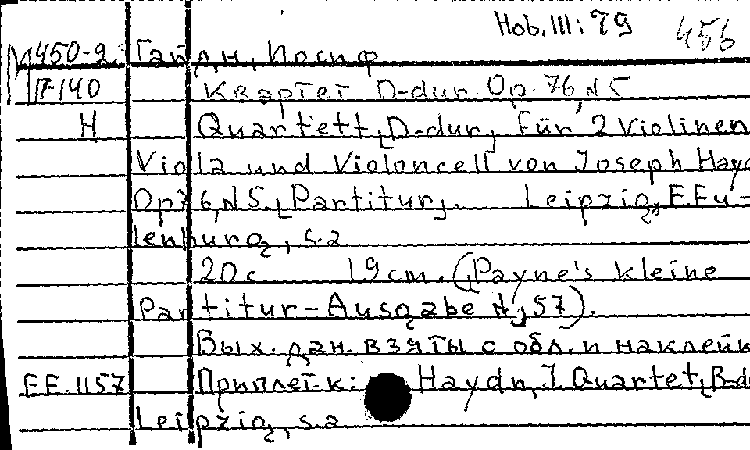 Hob. III: 79 456
М450-2 Гайдн, Иосиф
П-140 Квартет D-dur Op. 76, N5
Н Quartett [D-dur] für 2 Violinen
Viola und Violoncell von Joseph Hayd
Op 76, N5. [Partitur]. Leipzig, E. Eu-
lenburg, s.a
20 с 19 cm. (Payne's kleine
Partitur-Ausgabe N 57).
Вых. дан. взяты с обл. и наклейк
E.E. 1157 Приплет. к: Haydn, J. Quartet, B-d
Leipzig, s.a